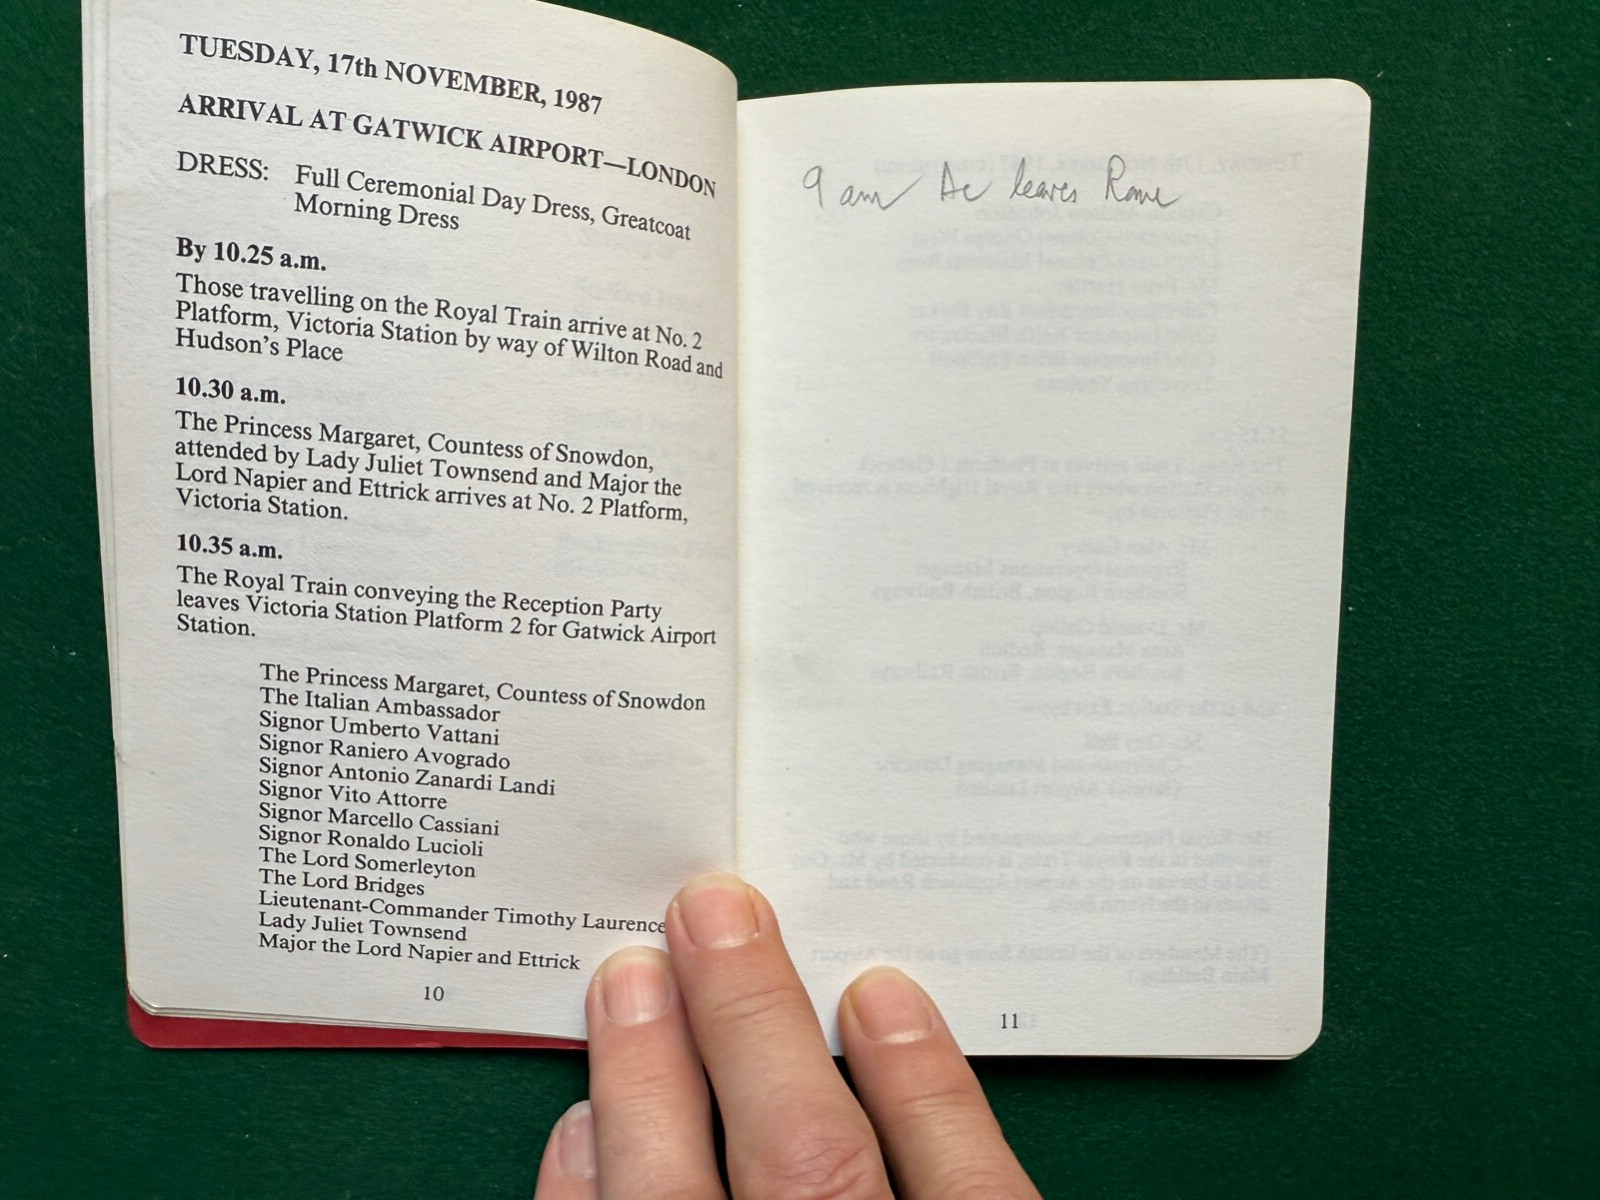 TUESDAY, 17th NOVEMBER, 1987
ARRIVAL AT GATWICK AIRPORT—LONDON
DRESS: Full Ceremonial Day Dress, Greatcoat
Morning Dress
By 10.25 a.m.
Those travelling on the Royal Train arrive at No. 2
Platform, Victoria Station by way of Wilton Road and
Hudson's Place
10.30 a.m.
The Princess Margaret, Countess of Snowdon,
attended by Lady Juliet Townsend and Major the
Lord Napier and Ettrick arrives at No. 2 Platform,
Victoria Station.
10.35 a.m.
The Royal Train conveying the Reception Party
leaves Victoria Station Platform 2 for Gatwick Airport
Station.
The Princess Margaret, Countess of Snowdon
The Italian Ambassador
Signor Umberto Vattani
Signor Raniero Avogrado
Signor Antonio Zanardi Landi
Signor Vito Attorre
Signor Marcello Cassiani
Signor Ronaldo Lucioli
The Lord Somerleyton
The Lord Bridges
Lieutenant-Commander Timothy Laurence
Lady Juliet Townsend
Major the Lord Napier and Ettrick
10
9 am leaves Rome
11